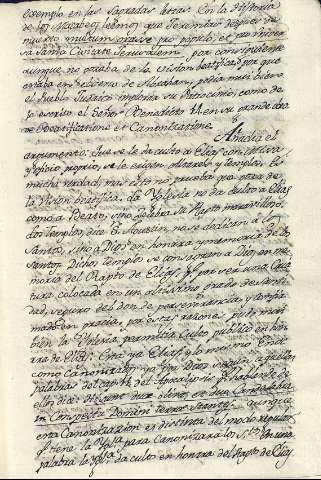 exemplo en las Sagradas letras. En la Historia
de los Macabeos leemos, que Jeremias despues de
muerto multum orat pro populo, et pro universa
sancta Civitate Jerusalem: por consiguiente
aunque no gozaba de la vision beatifica, por que
estaba en el seno de Abraham, podia mui bien
el Pueblo Judaico implorar su Patrocinio, como de
lo escrito el Señor Benedicto 14 en su grande obra
de Beatificatione et Canonizatione.
Añadia el
argumento: Que se le da culto a Elias con
y oficio proprio, se le erigen altares, y templos. Es
mucha verdad; mas esto no prueba que goza de
la Vision beatifica. La Yglesia no da culto a Elias
como a Beato, sino celebra su Rapto maravilloso.
Los templos, dice S. Agustin, no se dedican a los
Santos, sino a Dios en honra, y memoria de los
Santos. Dichos templos se consagran a Dios en me
moria del Rapto de Elias. Y por ser una Cria
tura colocada en un altisimo grado de santi
dad, seguro del don de perseverancia, y confir
mado en gracia, por estas razones pudo mui
bien la Yglesia permitir culto publico en hon
rra de Elias. Era ya Elias, y lo mismo Enoc
como Canonizados ya por Dios, segun aquellas
palabras del cap. 11 del Apocalipsi, hablando de
ellos dice: Hi sunt duæ olivæ, et duo Candelabra
in Conspectu Domini terræ stantes. Y aunque
esta Canonizacion es distinta del modo regular
q.e tiene la Yg.a para Canonizar a los S.tos En una
palabra la Yg.a da culto en honra del Rapto de Elias,